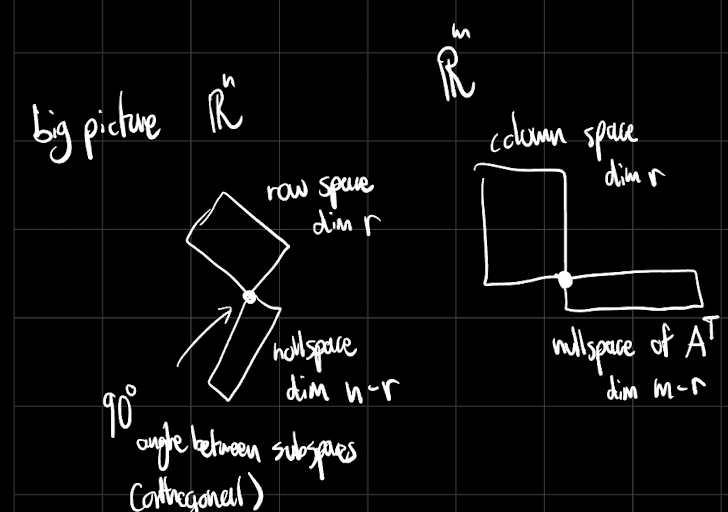 big picture
ℝⁿ
ℝᵐ
row space
dim r
nullspace
dim n-r
90°
angle between subspaces
(orthogonal)
column space
dim r
nullspace of Aᵀ
dim m-r